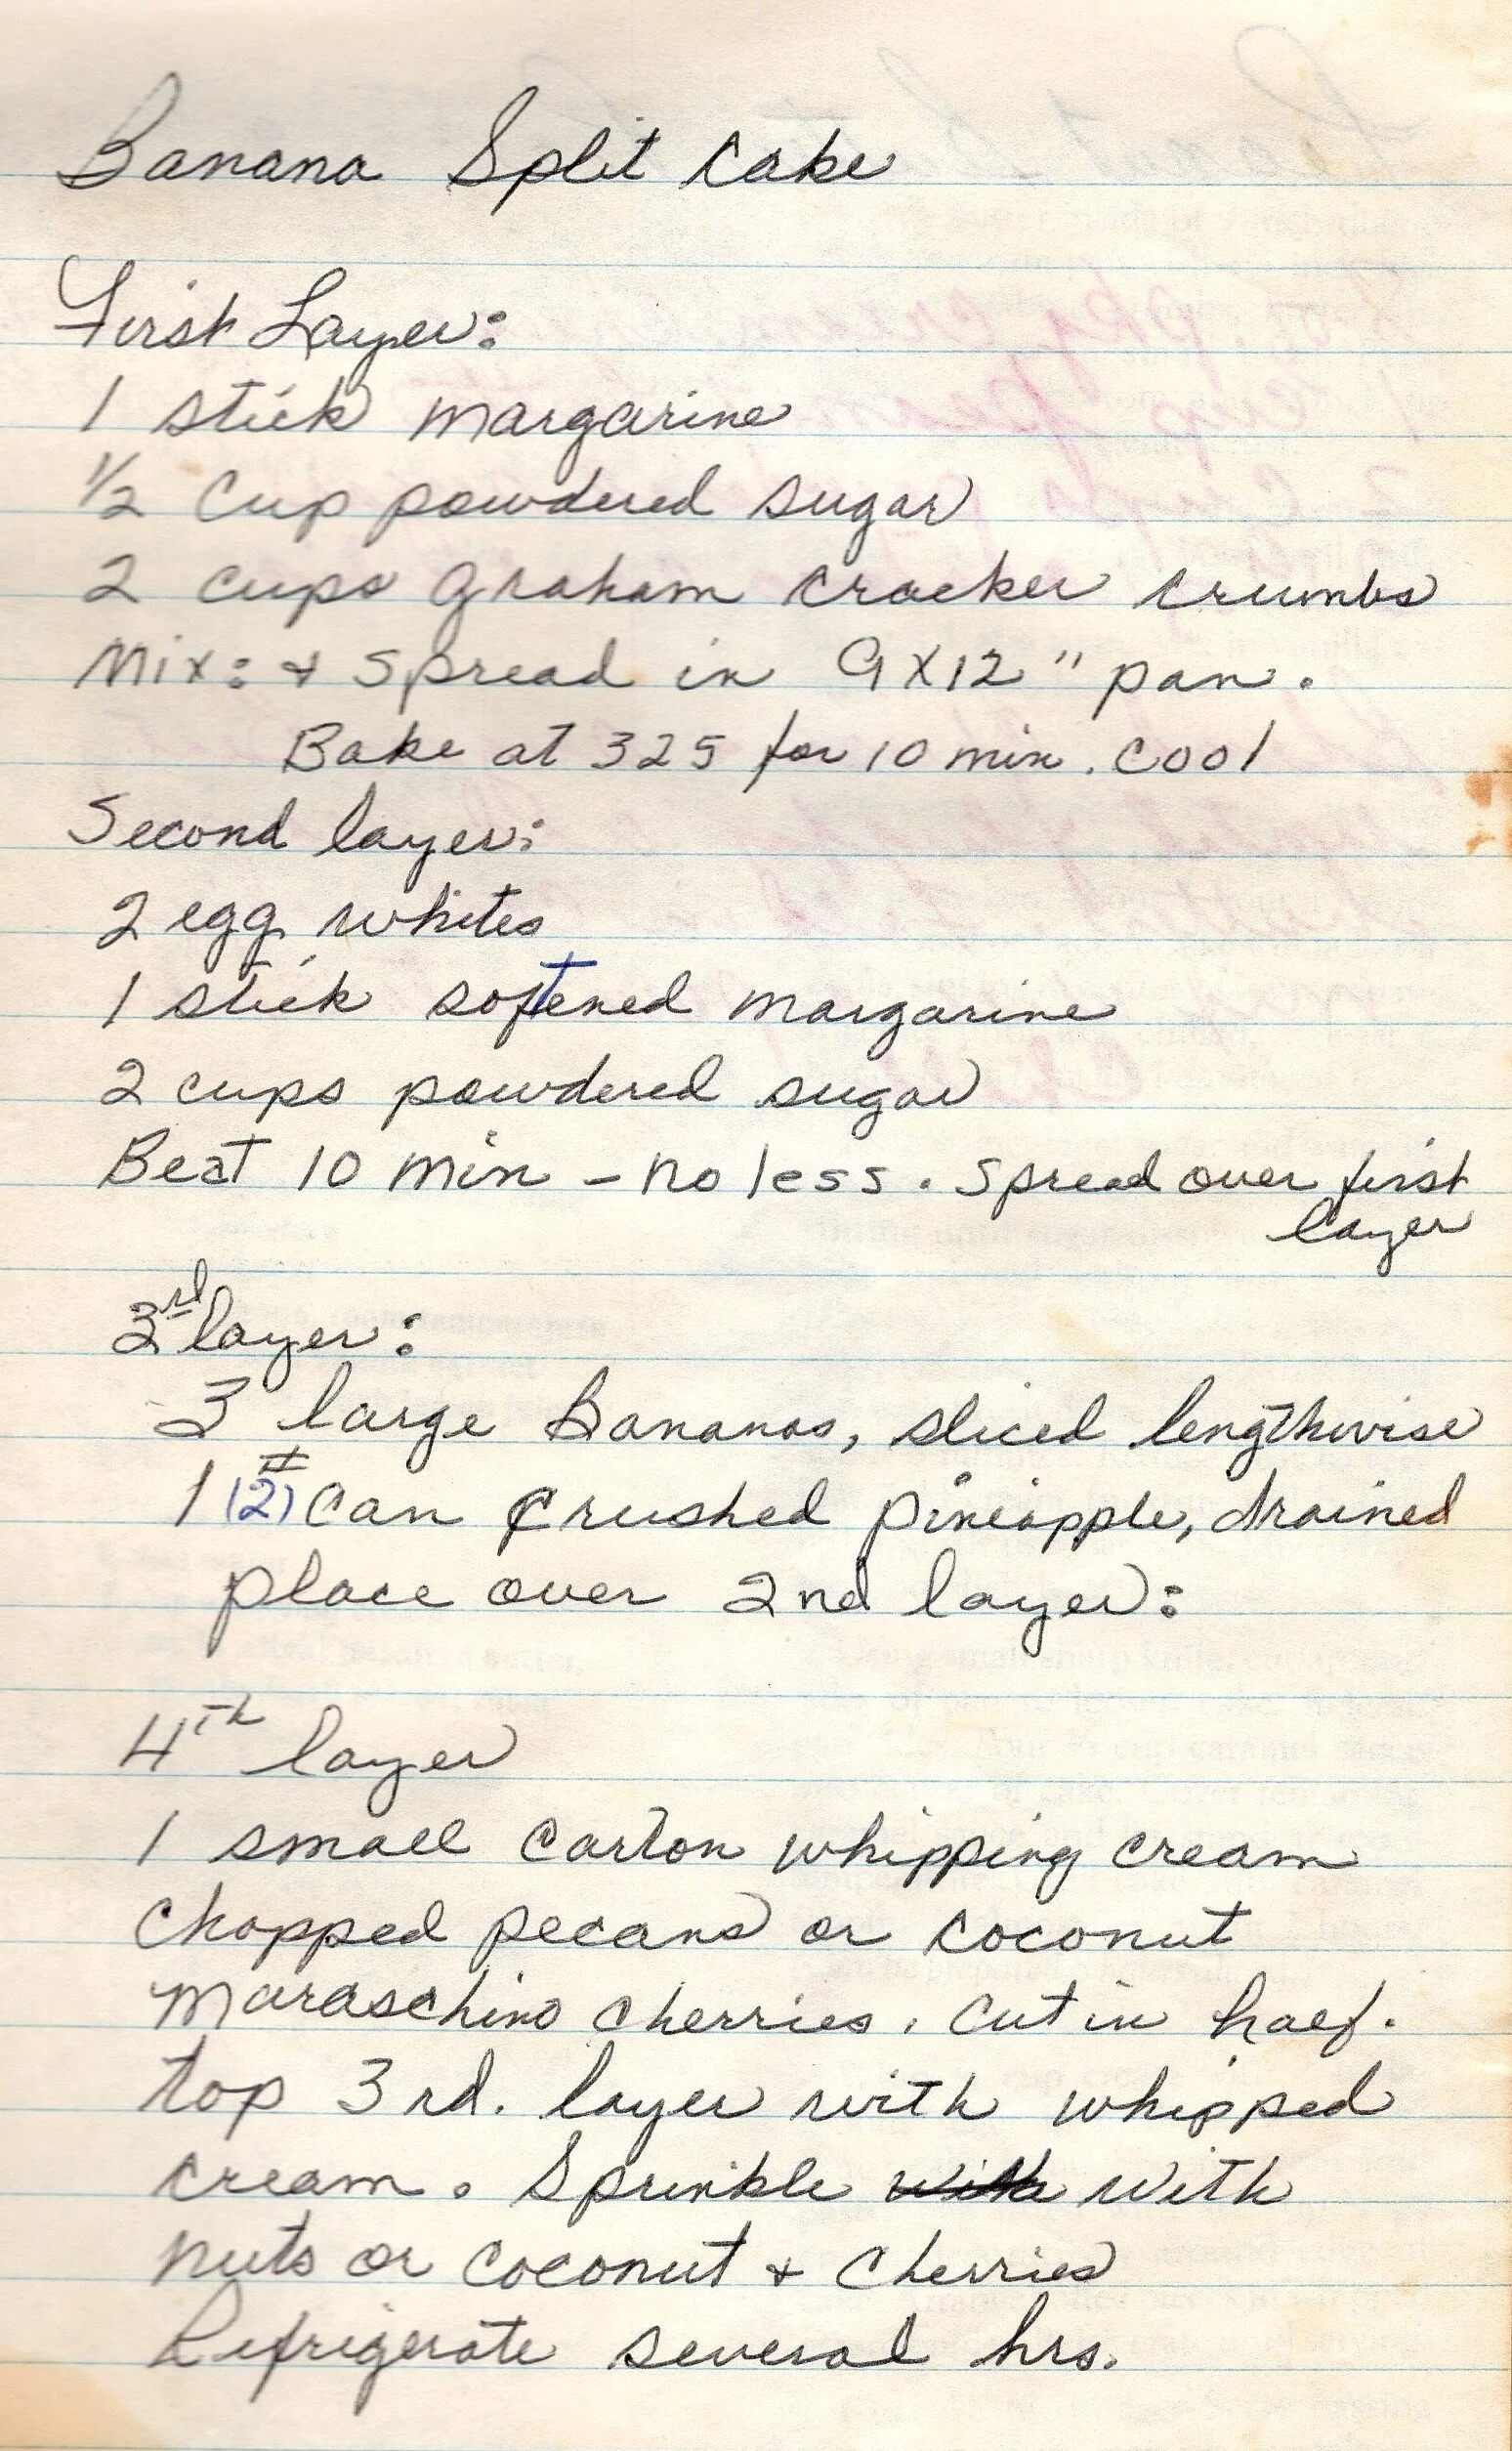 Banana Split Cake
First Layer:
1 stick margarine
1/2 Cup powdered sugar
2 cups graham cracker crumbs
Mix: & spread in 9X12" pan.
Bake at 325 for 10 min. cool
Second layer:
2 egg whites
1 stick softened margarine
2 cups powdered sugar
Beat 10 min - no less. Spread over first
layer
3rd layer:
3 large Bananas, sliced lengthwise
1 #(2) can crushed pineapple, drained
place over 2nd layer:
4th layer
1 small carton whipping cream
chopped pecans or coconut
maraschino cherries. cut in half.
top 3rd. layer with whipped
cream. Sprinkle with with
nuts or coconut & cherries
Refrigerate several hrs.